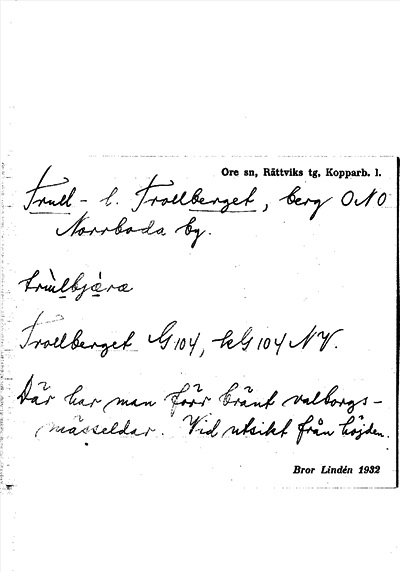 Ore sn, Rättviks tg, Kopparb. l.
Trull- l. Trollberget, berg ONO
Norrboda by.
trùlbjæ̀ræ
Trollberget G104, kG104 NV.
Där har man förr bränt valborgs-
mässeldar. Vid utsikt från höjden.
Bror Lindén 1932